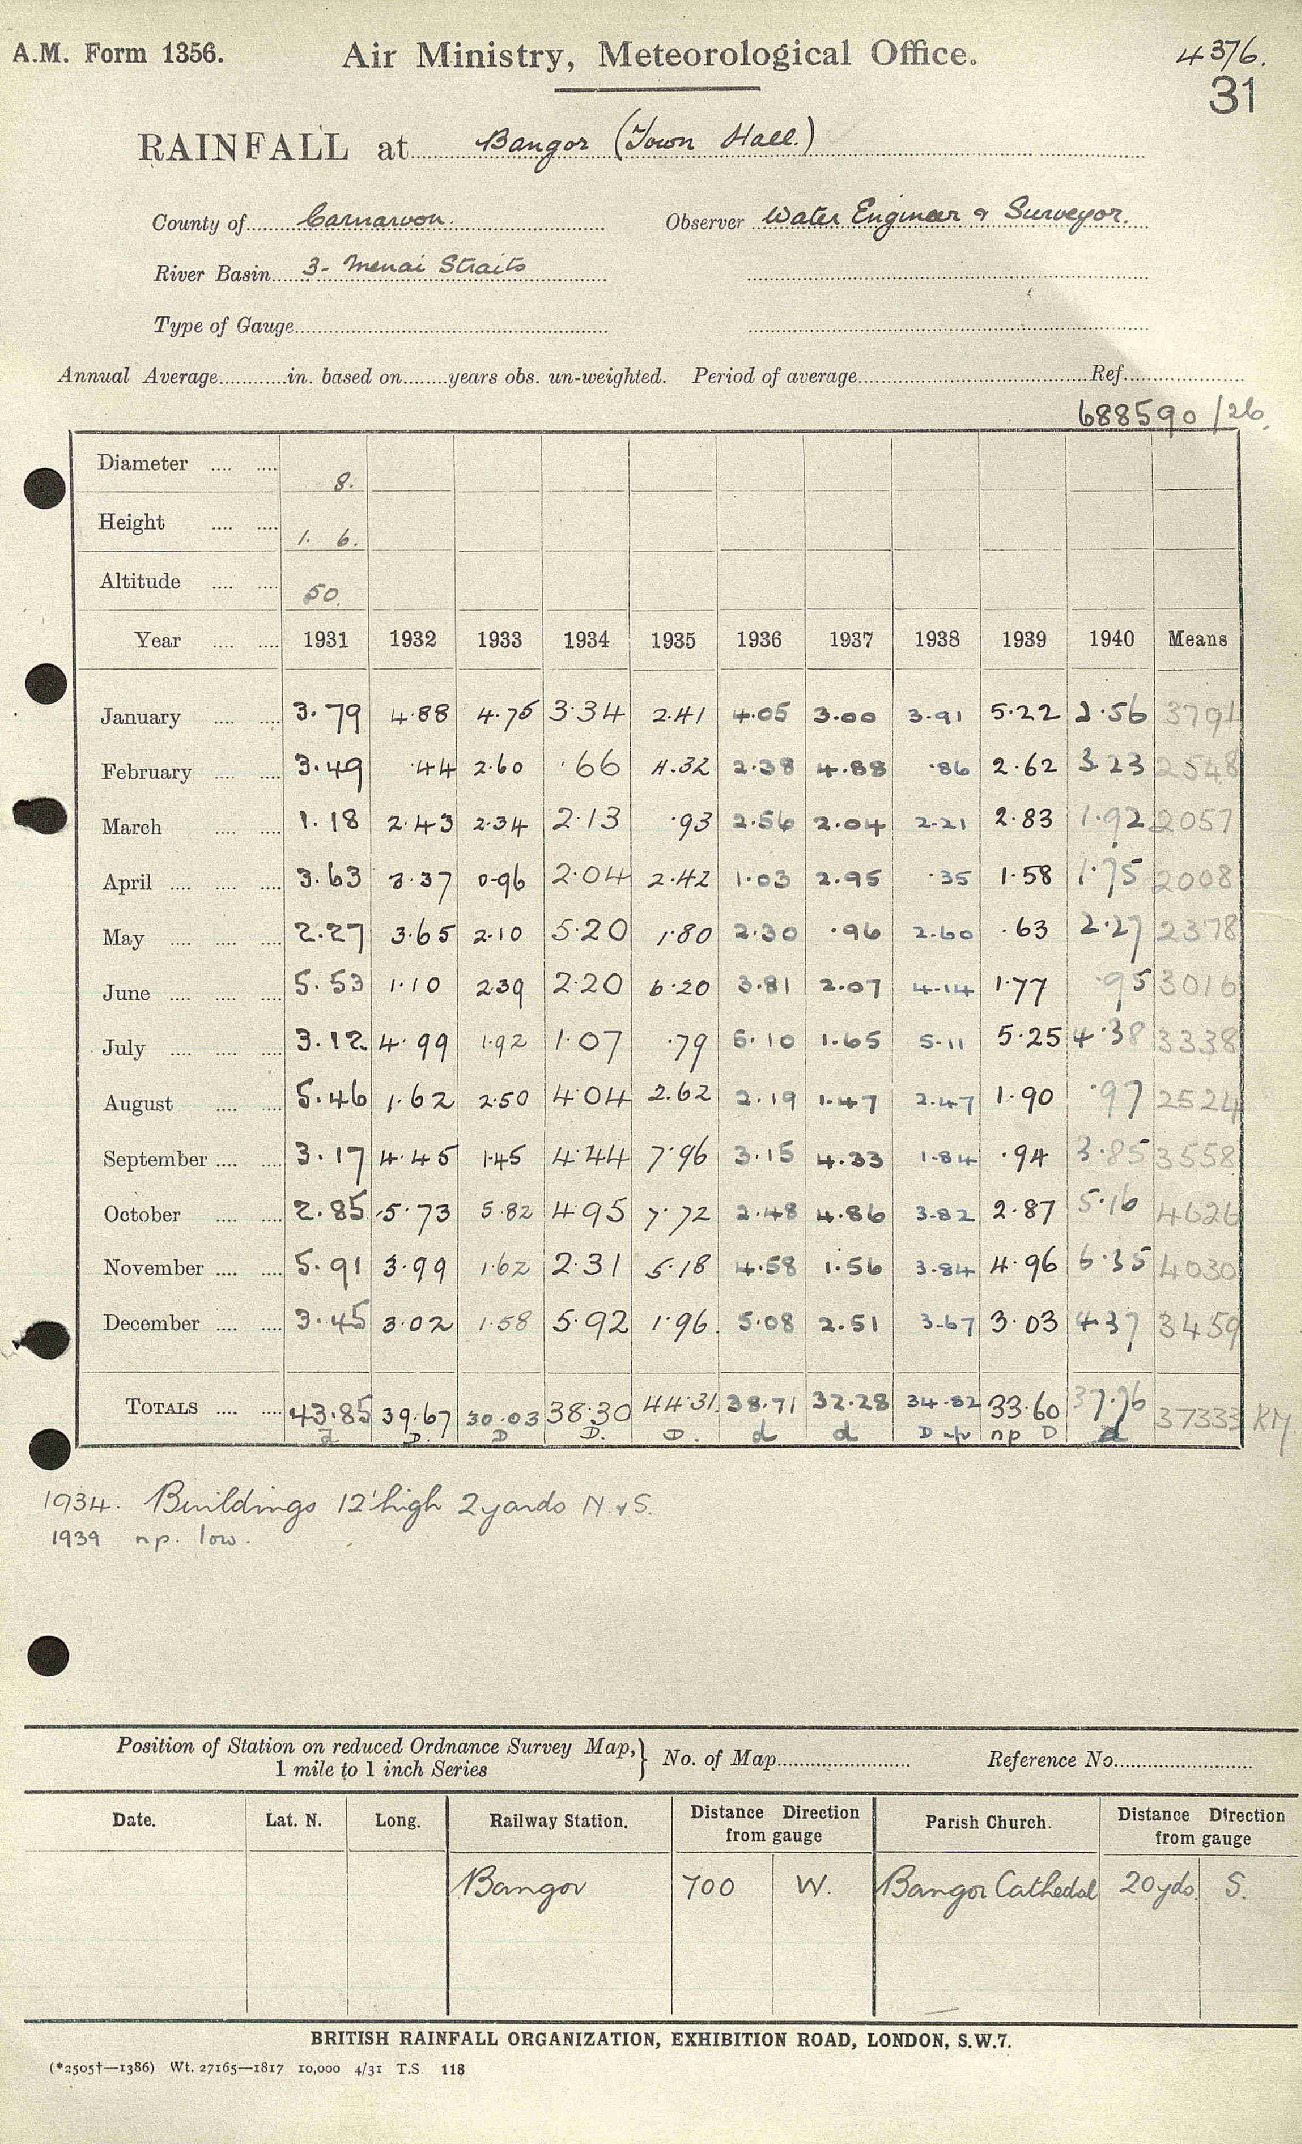 A.M. Form 1356. Air Ministry, Meteorological Office. 4376.
31
RAINFALL at Bangor (Town Hall.)
County of Carnarvon. Observer Water Engineer & Surveyor.
River Basin 3- Menai Straits
Type of Gauge
Annual Average in. based on years obs. un-weighted. Period of average Ref.
688590/26.
Diameter 8.
Height 1. 6.
Altitude 50
Year 1931 1932 1933 1934 1935 1936 1937 1938 1939 1940 Means
January 3.79 4.88 4.75 3.34 2.41 4.05 3.00 3.91 5.22 2.56 3791
February 3.49 .44 2.60 .66 4.32 2.38 4.88 .86 2.62 3.23 2548
March 1.18 2.43 2.34 2.13 .93 2.56 2.04 2.21 2.83 1.92 2057
April 3.63 3.37 0.96 2.04 2.42 1.03 2.95 .35 1.58 1.75 2008
May 2.27 3.65 2.10 5.20 1.80 2.30 .96 2.60 .63 2.27 2378
June 5.53 1.10 2.39 2.20 6.20 3.81 2.07 4.14 1.77 .95 3016
July 3.12 4.99 1.92 1.07 .79 5.10 1.65 5.11 5.25 4.38 3338
August 5.46 1.62 2.50 4.04 2.62 2.19 1.47 2.47 1.90 .97 2524
September 3.17 4.45 1.45 4.44 7.96 3.15 4.33 1.84 .94 3.85 3558
October 2.85 5.73 5.82 4.95 7.72 2.48 4.86 3.82 2.87 5.16 4626
November 5.91 3.99 1.62 2.31 5.18 4.58 1.56 3.84 4.96 6.35 4030
December 3.45 3.02 1.58 5.92 1.96 5.08 2.51 3.67 3.03 4.37 3459
TOTALS 43.85 39.67 30.03 38.30 44.31 38.71 32.28 34.82 33.60 37.76 37333
d D. D D. D. d d D np D d
1934. Buildings 12' high 2 yards N & S.
1939 np. low.
Position of Station on reduced Ordnance Survey Map, 1 mile to 1 inch Series } No. of Map Reference No.
Date. Lat. N. Long. Railway Station. Distance Direction from gauge Parish Church. Distance Direction from gauge
Bangor 700 W. Bangor Cathedal 20 yds. S.
BRITISH RAINFALL ORGANIZATION, EXHIBITION ROAD, LONDON, S.W.7.
(*2505†—1386) Wt. 27165—1817 10,000 4/31 T.S. 118